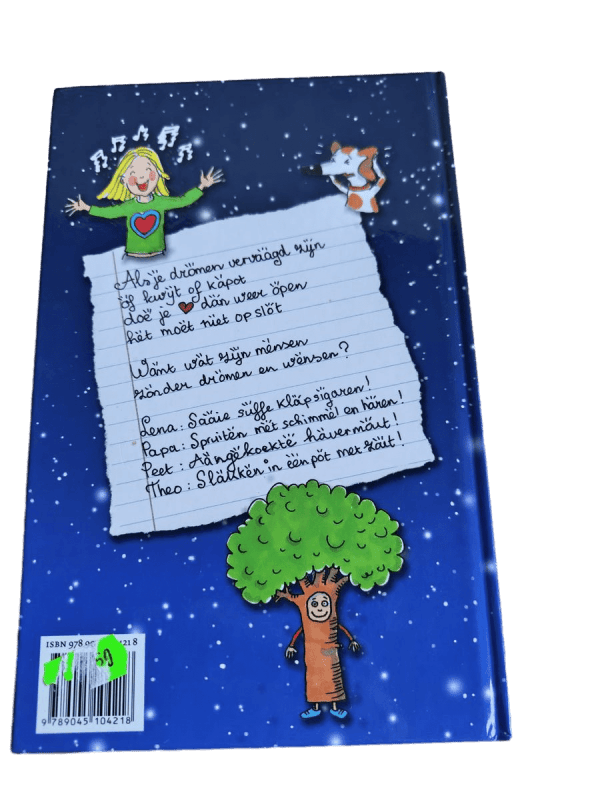 Als je dromen vervaagd zijn
of kwijt of kapot
doe je ❤ dan weer open
het moet niet op slot
Want wat zijn mensen
zonder dromen en wensen?
Lena: Saaie suffe klapsigaren!
Papa: Spruiten met schimmel en haren!
Peet: Aangekoekte havermout!
Theo: Slakken in één pot met zout!
ISBN 978 90 421 8
9 789045 104218